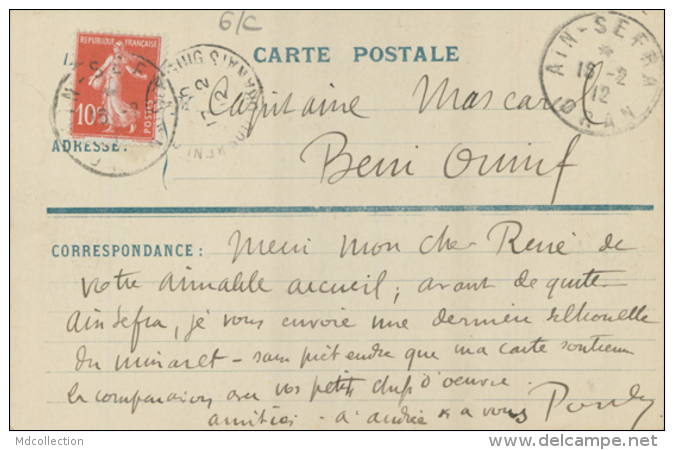 6/c
CARTE POSTALE
REPUBLIQUE FRANÇAISE
10
POSTES
AIN-SEFRA
15-2
12
ORAN
17 2
ADRESSE:
Capitaine Mascarel
Beni Ounif
CORRESPONDANCE: Merci mon cher René de
votre aimable accueil; avant de quitter
Ain Sefra, je vous envoie une derniere silhouette
du minaret - sans prétendre que ma carte soutienne
la comparaison avec vos petits chefs d'oeuvre.
amitiés - à andrée & a vous
Mdcollection
www.delcampe.net